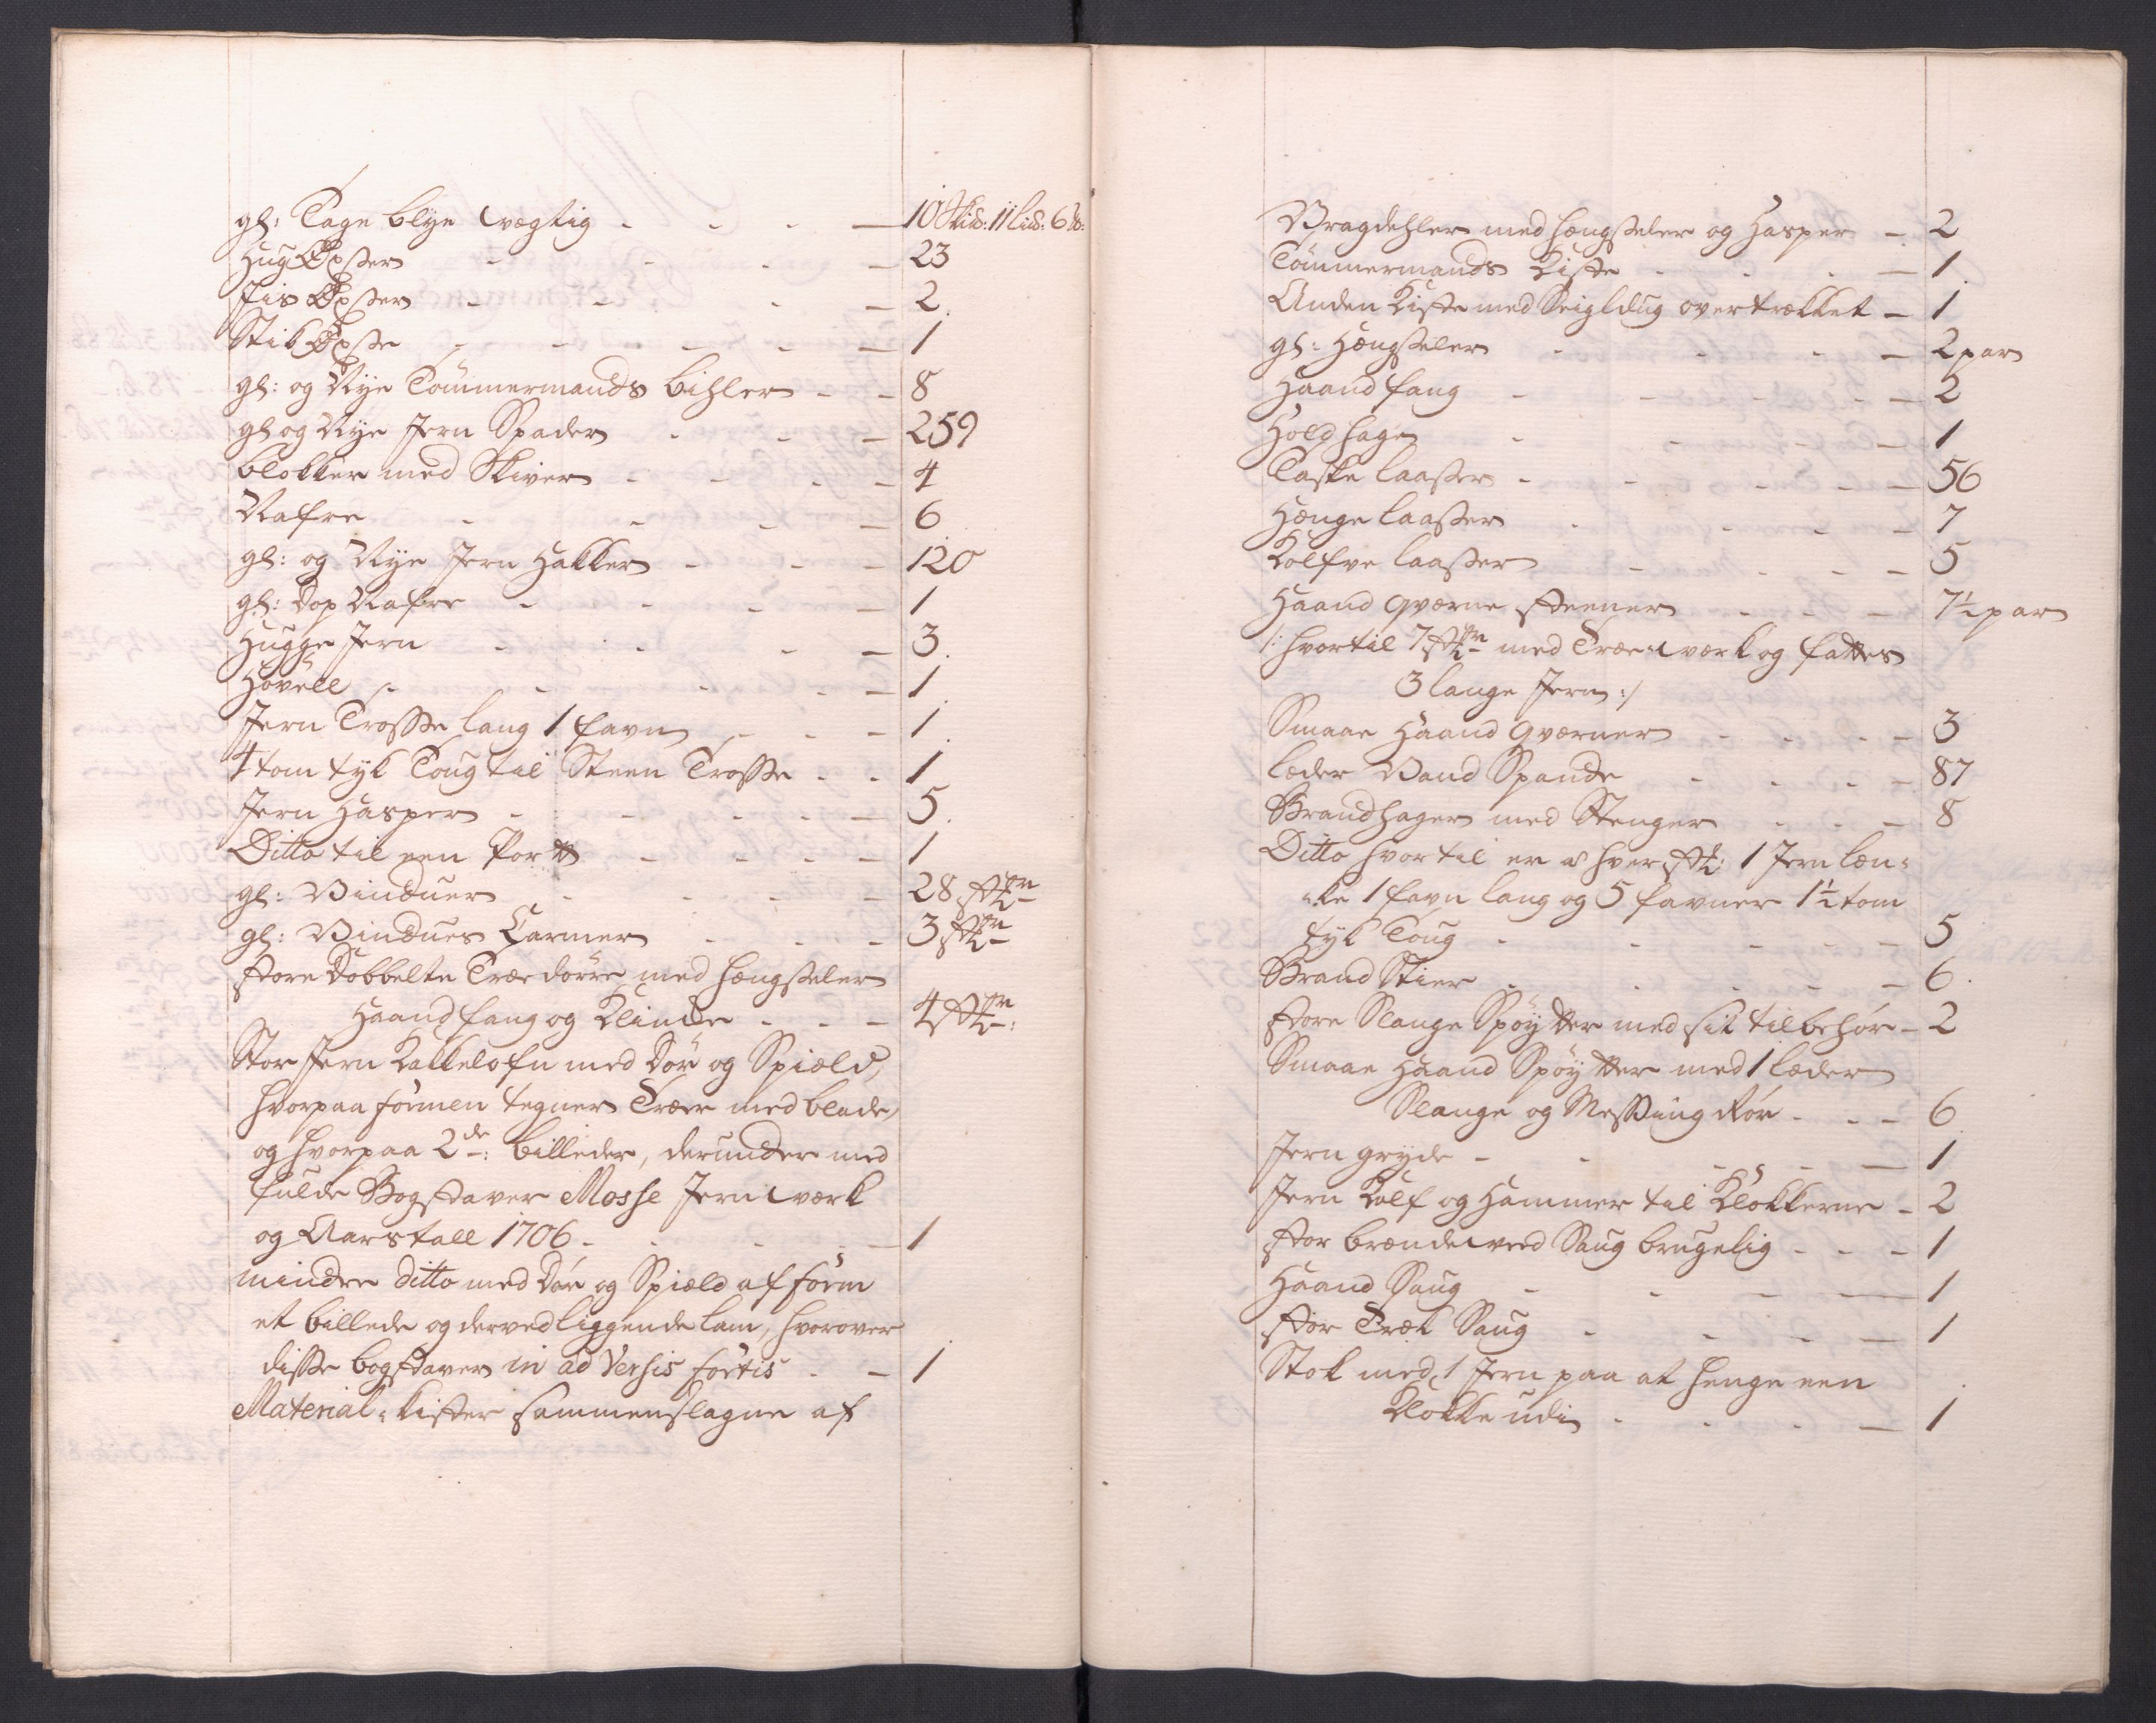 gl: Tage blye wægtig - - - 10 Skd: 11 Lisd: 6 lb:
Hug Øxser - - - 23
Jis Øxser - - - 2
Stik Øxse - - - 1
gl: og Nye Tømmermands bihler - - 8
gl og Nye Jern Spader - - - 259
blokker med Skiver - - - 4
Nafre - - - 6
gl: og Nye Jern Hakker - - - 120
gl: Dop Nafre - - - 1
Hugge Jern - - - 3
Høvell - - - 1
Jern Trosse lang 1 favn - - - 1
4 tom tyk Toug til Steen Trosse - - 1
Jern Hasper - - - 5
Ditto til een Portt - - - 1
gl: Vinduer - - - 28 stkr
gl: Vindues Carmer - - - 3 stkr
store Dobbelte Træe dørre med hængsseler
Haandfang og Klinke - - - 4 stkr:
Stor Jern Kakkelofn med Dør og Spiæld,
hvorpaa formen tegner Træer med blade,
og hvorpaa 2de: billeder, derunder med
fulde Bogstaver Mosse Jernwærk
og Aarstall 1706 - - - 1
minder ditto med Dør og Spiæld af form
et billede og derved liggende lam, hvorover
disse bogstaver in ad Versis fortis - - 1
Material-kister sammenslagne af
Vragdehler med hængsseler og Hasper - 2
Tømmermands Kiste - - - 1
Anden Kiste med Seigldug overtrækket - 1
gl: Hængsseler - - - 2 par
Haandfang - - - 2
Holdhage - - - 1
Taske laasser - - - 56
Hænge laasser - - - 7
Kolfve laasser - - - 5
Haand qværne steener - - - 7½ par
/: hvortil 7 stkr med Træewærk og fattes
3 lange Jern :/
Smaae Haand qværner - - - 3
læder Vand Spande - - - 87
Brandhager med Stenger - - - 8
Ditto hvortil er a hver stk: 1 Jern læn-
-ke 1 favn lang og 5 favner 1½ tom
tyk Toug - - - 5
Brand Stier - - - 6
store Slange Spøytter med sit tilbehør - 2
Smaae Haand Spøytter med 1 læder
Slange og Messing Rør - - - 6
Jern gryde - - - 1
Jern Kolf og Hammer til Klokkerne - 2
stor brændeweed Saug brugelig - - - 1
Haand Saug - - - 1
stor Træk Saug - - - 1
Stok med 1 Jern paa at henge een
Klokke udi - - - 1